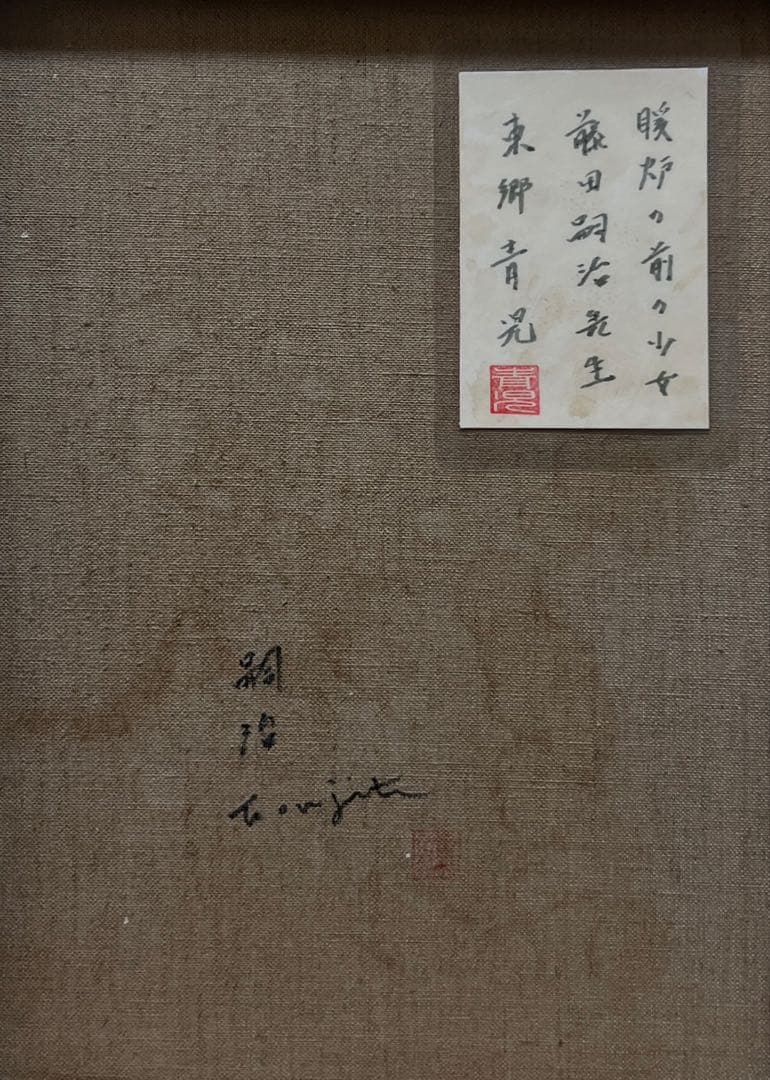 暖炉の前の少女
藤田嗣治先生
東郷青児
青児
嗣
治
Foujita